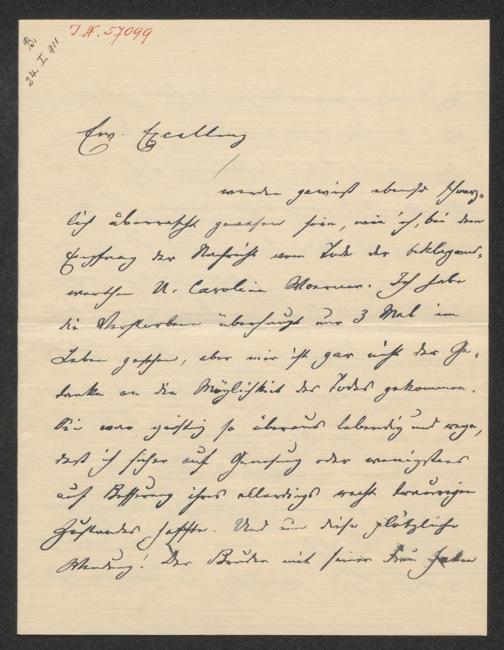 J. N. 57099
B.
24. I. 911
Ew. Excellenz
werden gewiß ebenso schmerz-
lich überrascht gewesen sein, wie ich, bei dem
Empfang der Nachricht vom Tode der beklagens-
werthen U. Carolina Woerner. Ich habe
die Verstorbene überhaupt nur 3 Mal im
Leben gesehen, aber mir ist gar nicht der Ge-
danke an die Möglichkeit des Todes gekommen.
Sie war geistig so überaus lebendig und rege,
daß ich sicher auf Genesung oder wenigstens
auf Besserung ihres allerdings recht traurigen
Zustandes hoffte. Und nun diese plötzliche
Wendung! Der Bruder mit seiner Frau haben